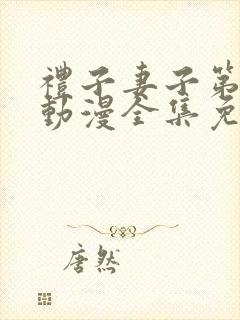 禮子妻子第
動漫全集免
唐然